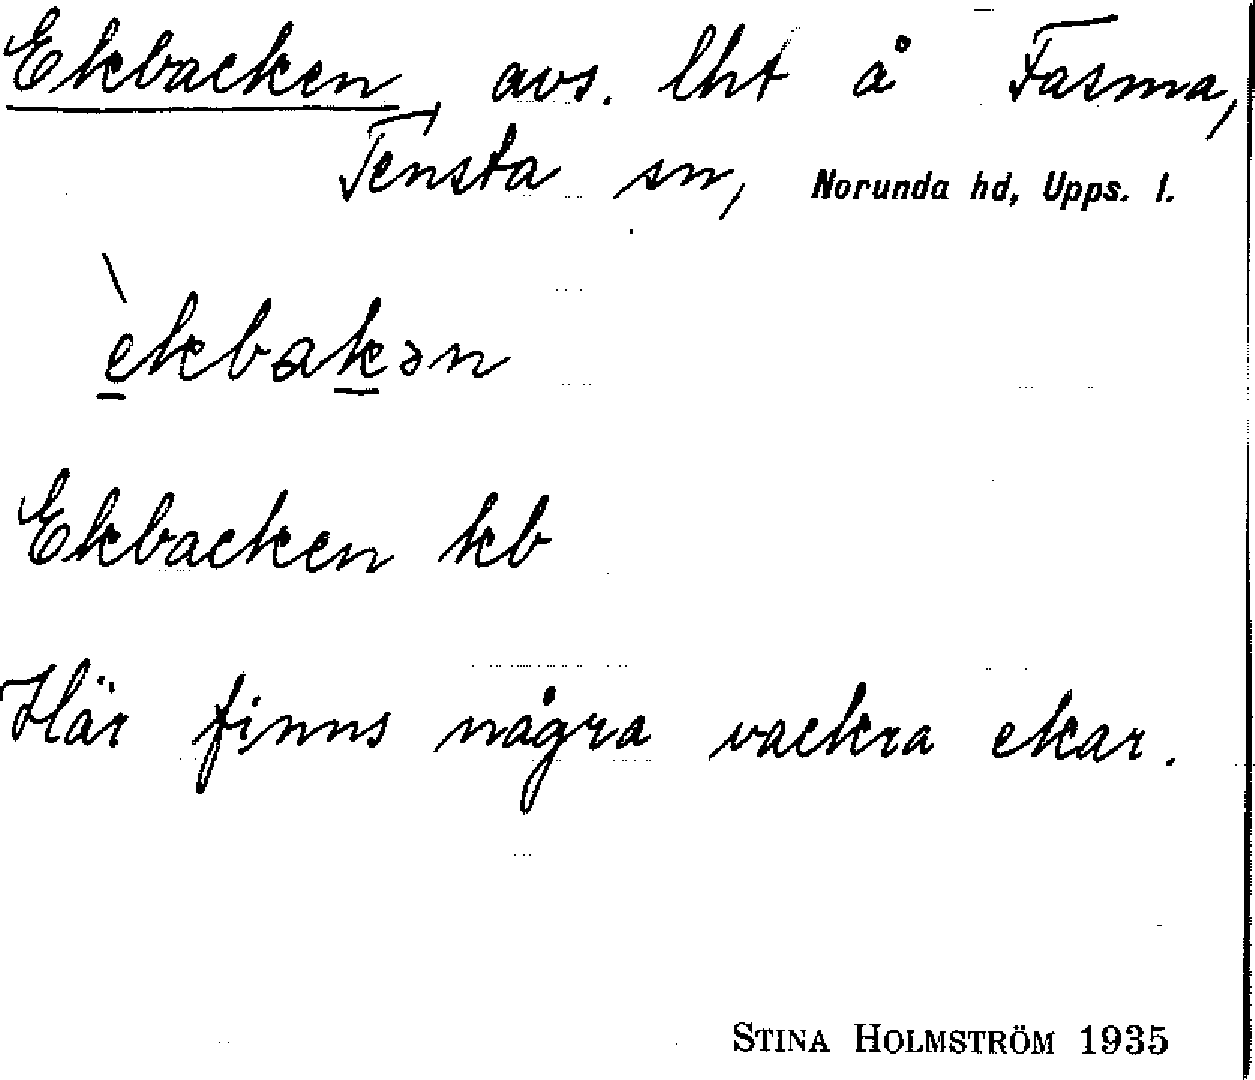 Ekbacken, avs. lht å Fasma,
Tensta sn, Norunda hd, Upps. l.
è̠kbak̠ən
Ekbacken kb
Här finns några vackra ekar.
STINA HOLMSTRÖM 1935